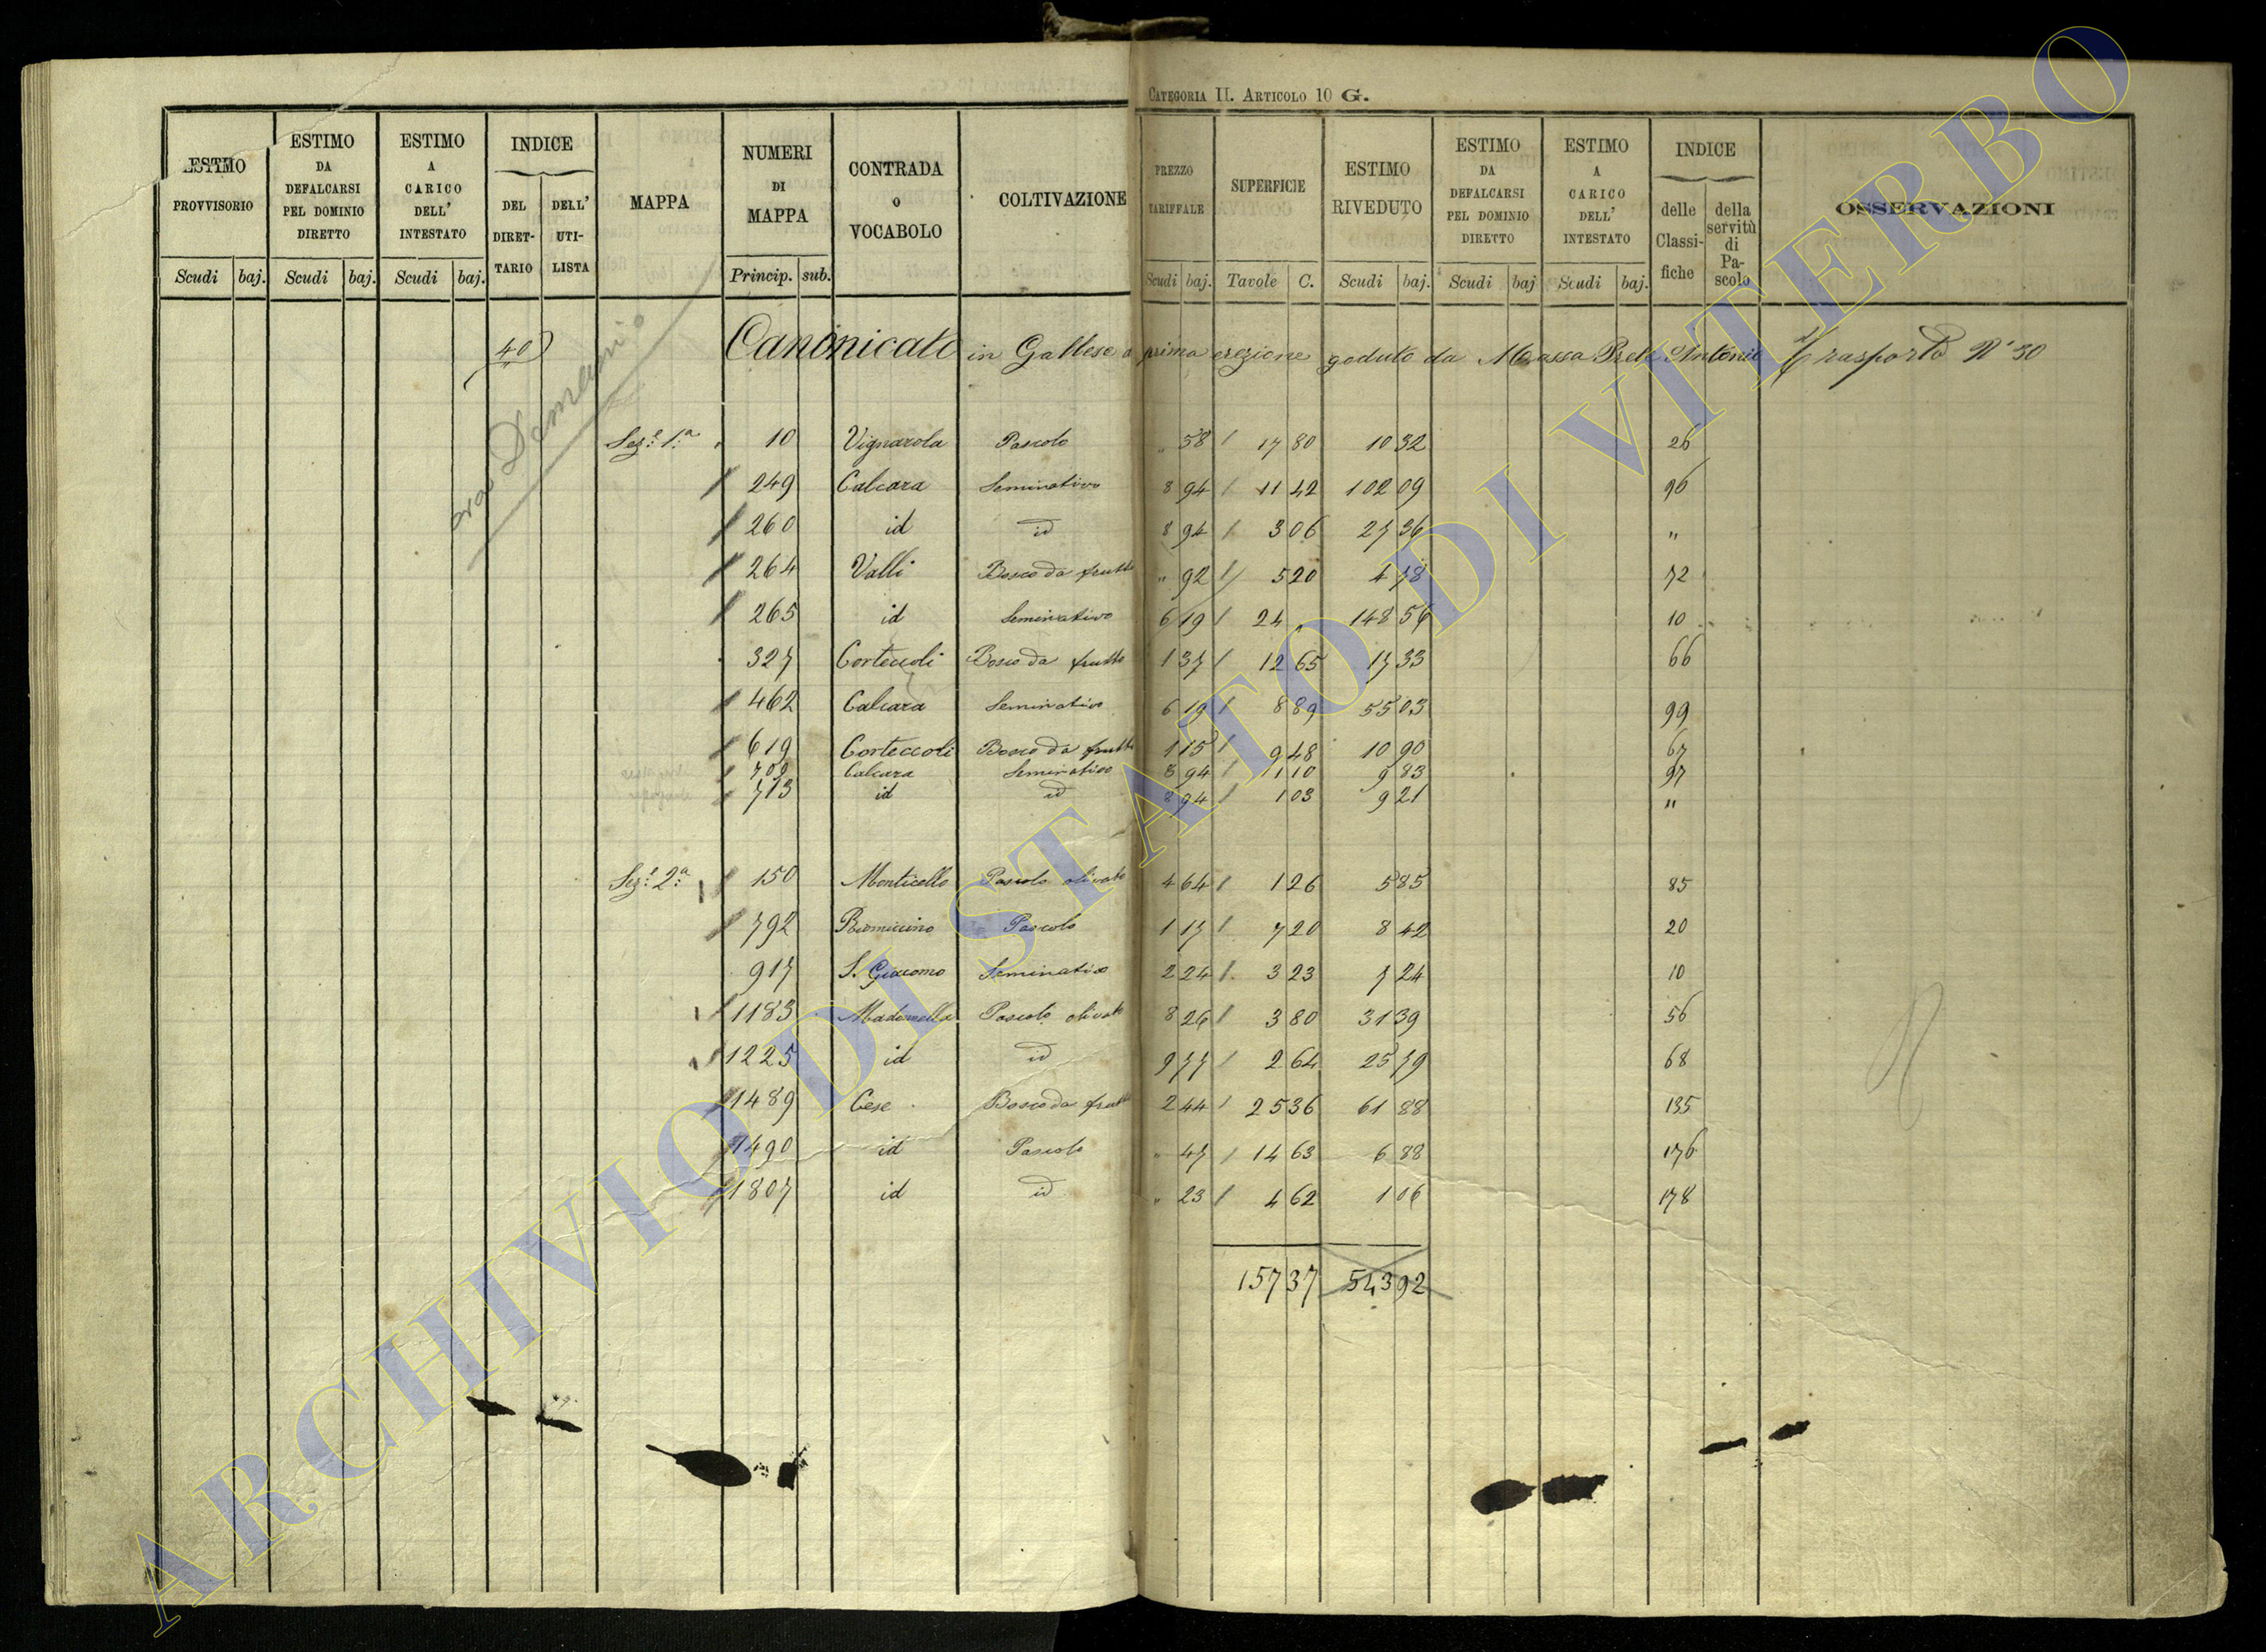 CATEGORIA II. ARTICOLO 10 G.
ESTIMO PROVVISORIO Scudi baj. ESTIMO DA DEFALCARSI PEL DOMINIO DIRETTO Scudi baj. ESTIMO A CARICO DELL' INTESTATO Scudi baj. INDICE DEL DIRETTARIO DELL' UTILISTA MAPPA NUMERI DI MAPPA Princip. sub. CONTRADA O VOCABOLO COLTIVAZIONE PREZZO TARIFFALE Scudi baj. SUPERFICIE Tavole C. ESTIMO RIVEDUTO Scudi baj. ESTIMO DA DEFALCARSI PEL DOMINIO DIRETTO Scudi baj ESTIMO A CARICO DELL' INTESTATO Scudi baj. INDICE delle Classifiche della servitù di Pascolo OSSERVAZIONI
40 Canonicato in Gallese prima erezione goduto da Massa Prete Antonio Trasporto N° 30
ora Demanio
Sez.e 1.a 10 Vignarola Pascolo " 58 17 80 10 32 26
249 Calcara Seminativo 8 94 11 42 102 09 96
260 id id 8 94 3 06 27 36 "
264 Valli Bosco da frutto " 92 5 20 4 78 72
265 id Seminativo 6 19 24 " 148 56 10
327 Corteccoli Bosco da frutto 1 37 12 65 17 33 66
462 Calcara Seminativo 6 19 8 89 55 03 99
619 Corteccoli Bosco da frutto 1 15 9 48 10 90 67
709 Calcara Seminativo 8 94 1 10 9 83 97
713 id id 8 94 1 03 9 21 "
Sez.e 2.a 150 Monticello Pascolo olivato 4 64 1 26 5 85 85
792 Pascolo 1 17 7 20 8 42 20
917 S. Giacomo Seminativo 2 24 3 23 7 24 10
1183 Madonnella Pascolo olivato 8 26 3 80 31 39 56
1225 id id 9 77 2 64 25 79 68
1489 Cese Bosco da frutto 2 44 25 36 61 88 135
1490 id Pascolo " 47 14 63 6 88 176
1807 id id " 23 4 62 1 06 178
157 37 543 92
ARCHIVIO DI STATO DI VITERBO